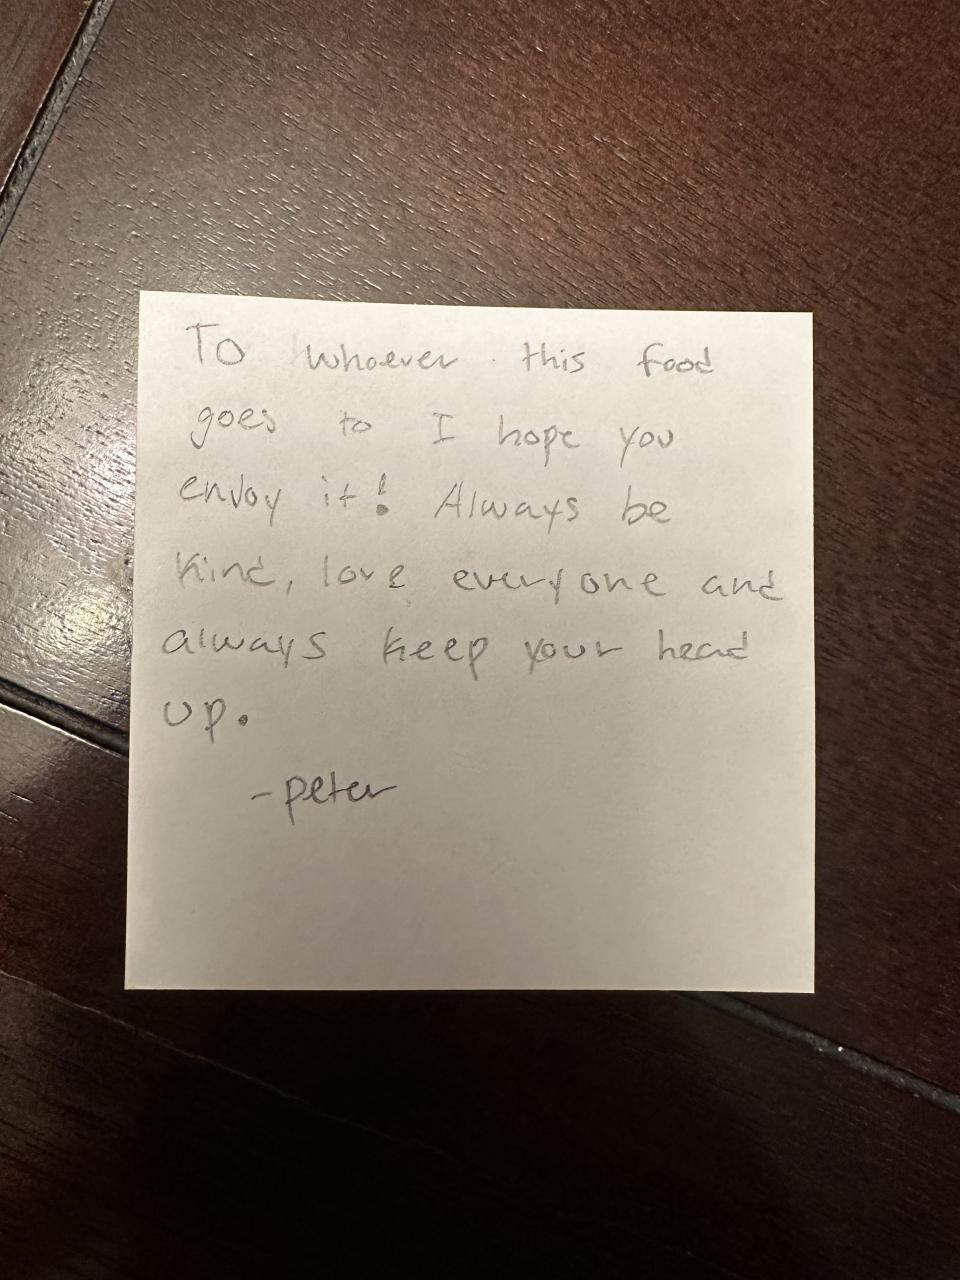 To whoever this food
goes to I hope you
enjoy it! Always be
kind, love everyone and
always keep your head
up.
-peter